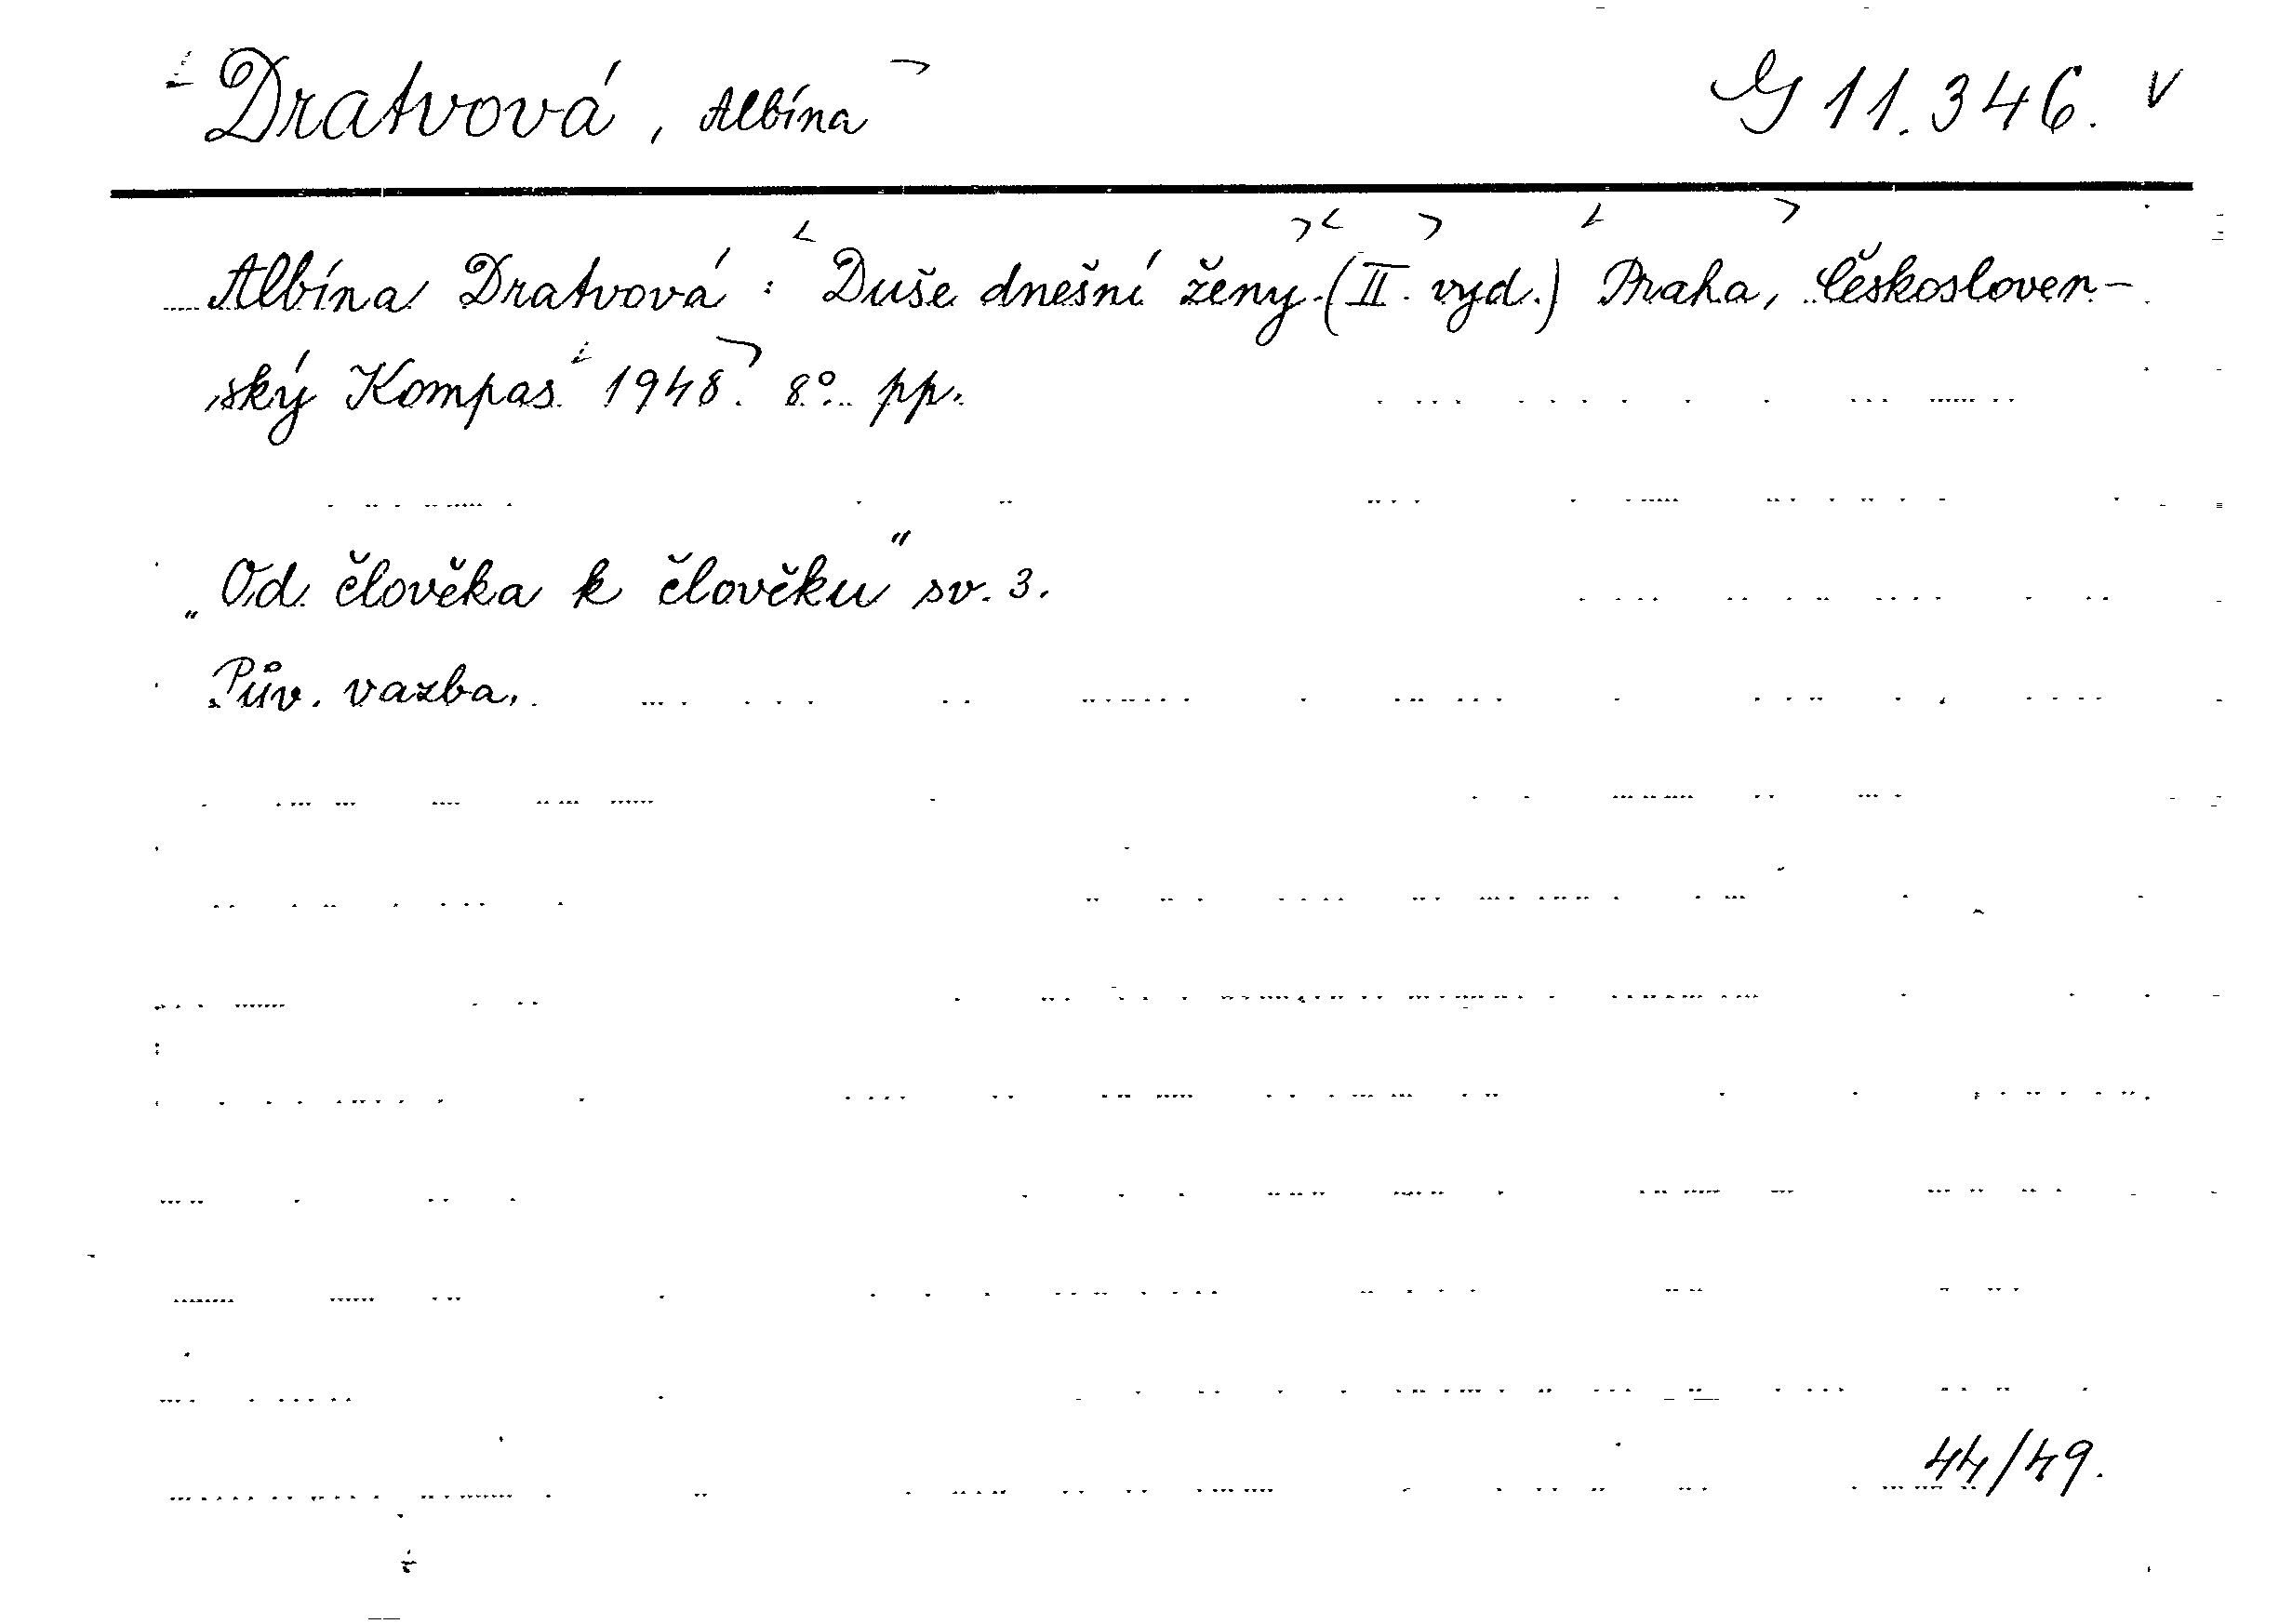 Dratvová, Albína G 11.346. V
Albína Dratvová: Duše dnešní ženy. (II. vyd.) Praha, Českosloven-
ský Kompas 1948. 8°. pp.
„Od člověka k člověku“ sv. 3.
Pův. vazba.
44/49.